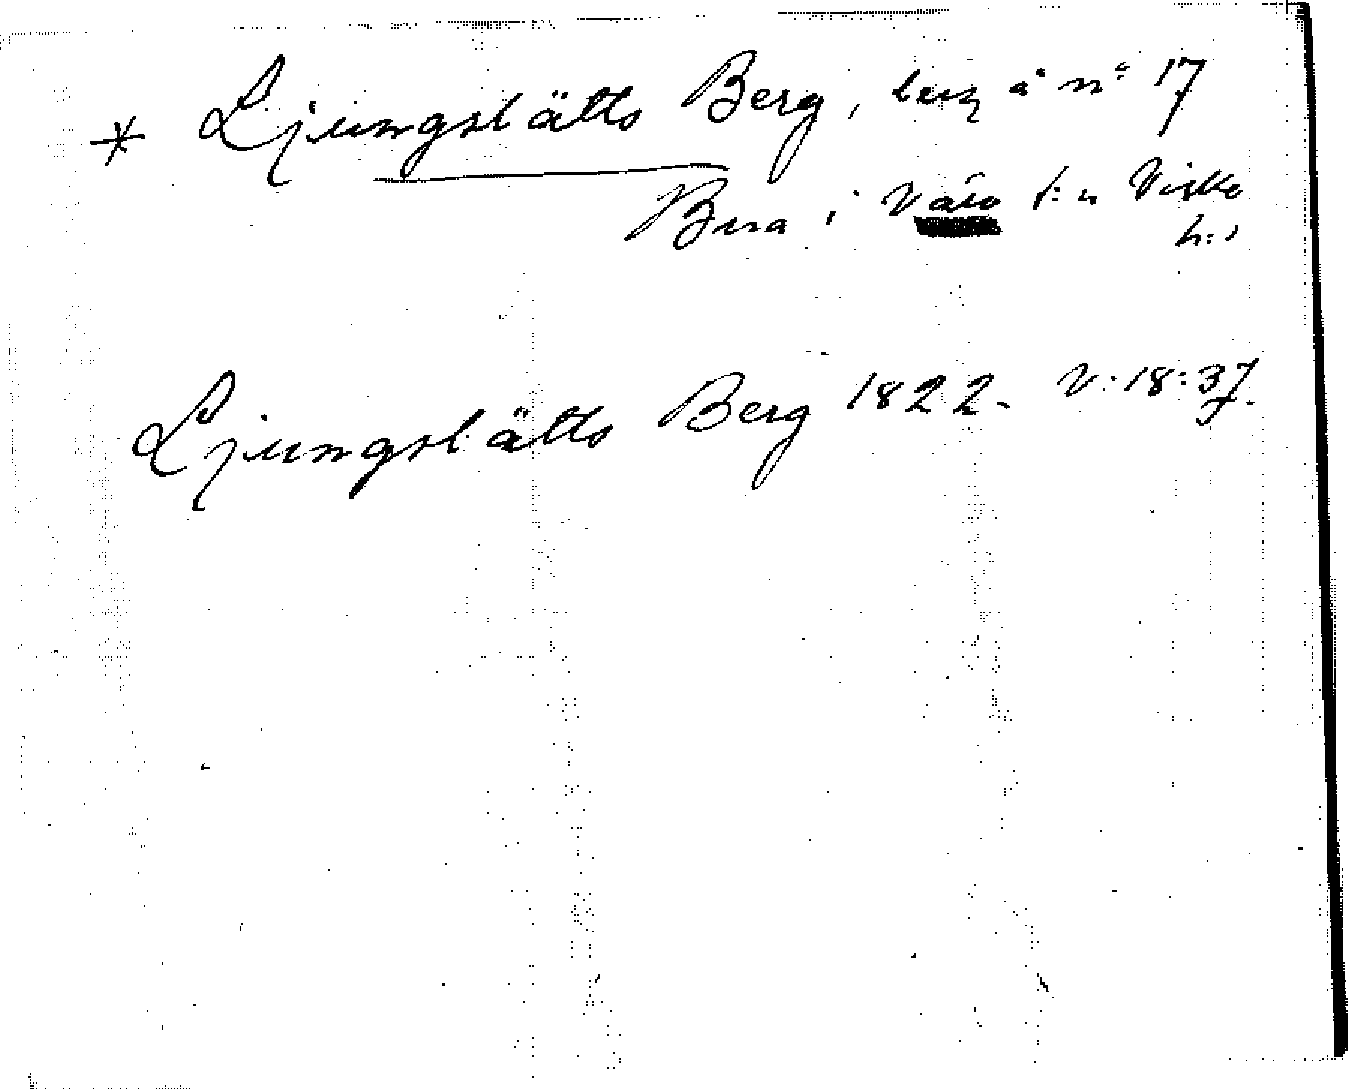 * Ljungslätts Berg, beg å nº 17
Bua i Värö s:n Viske
h:d
Ljungslätts Berg 1822. V:18:37.